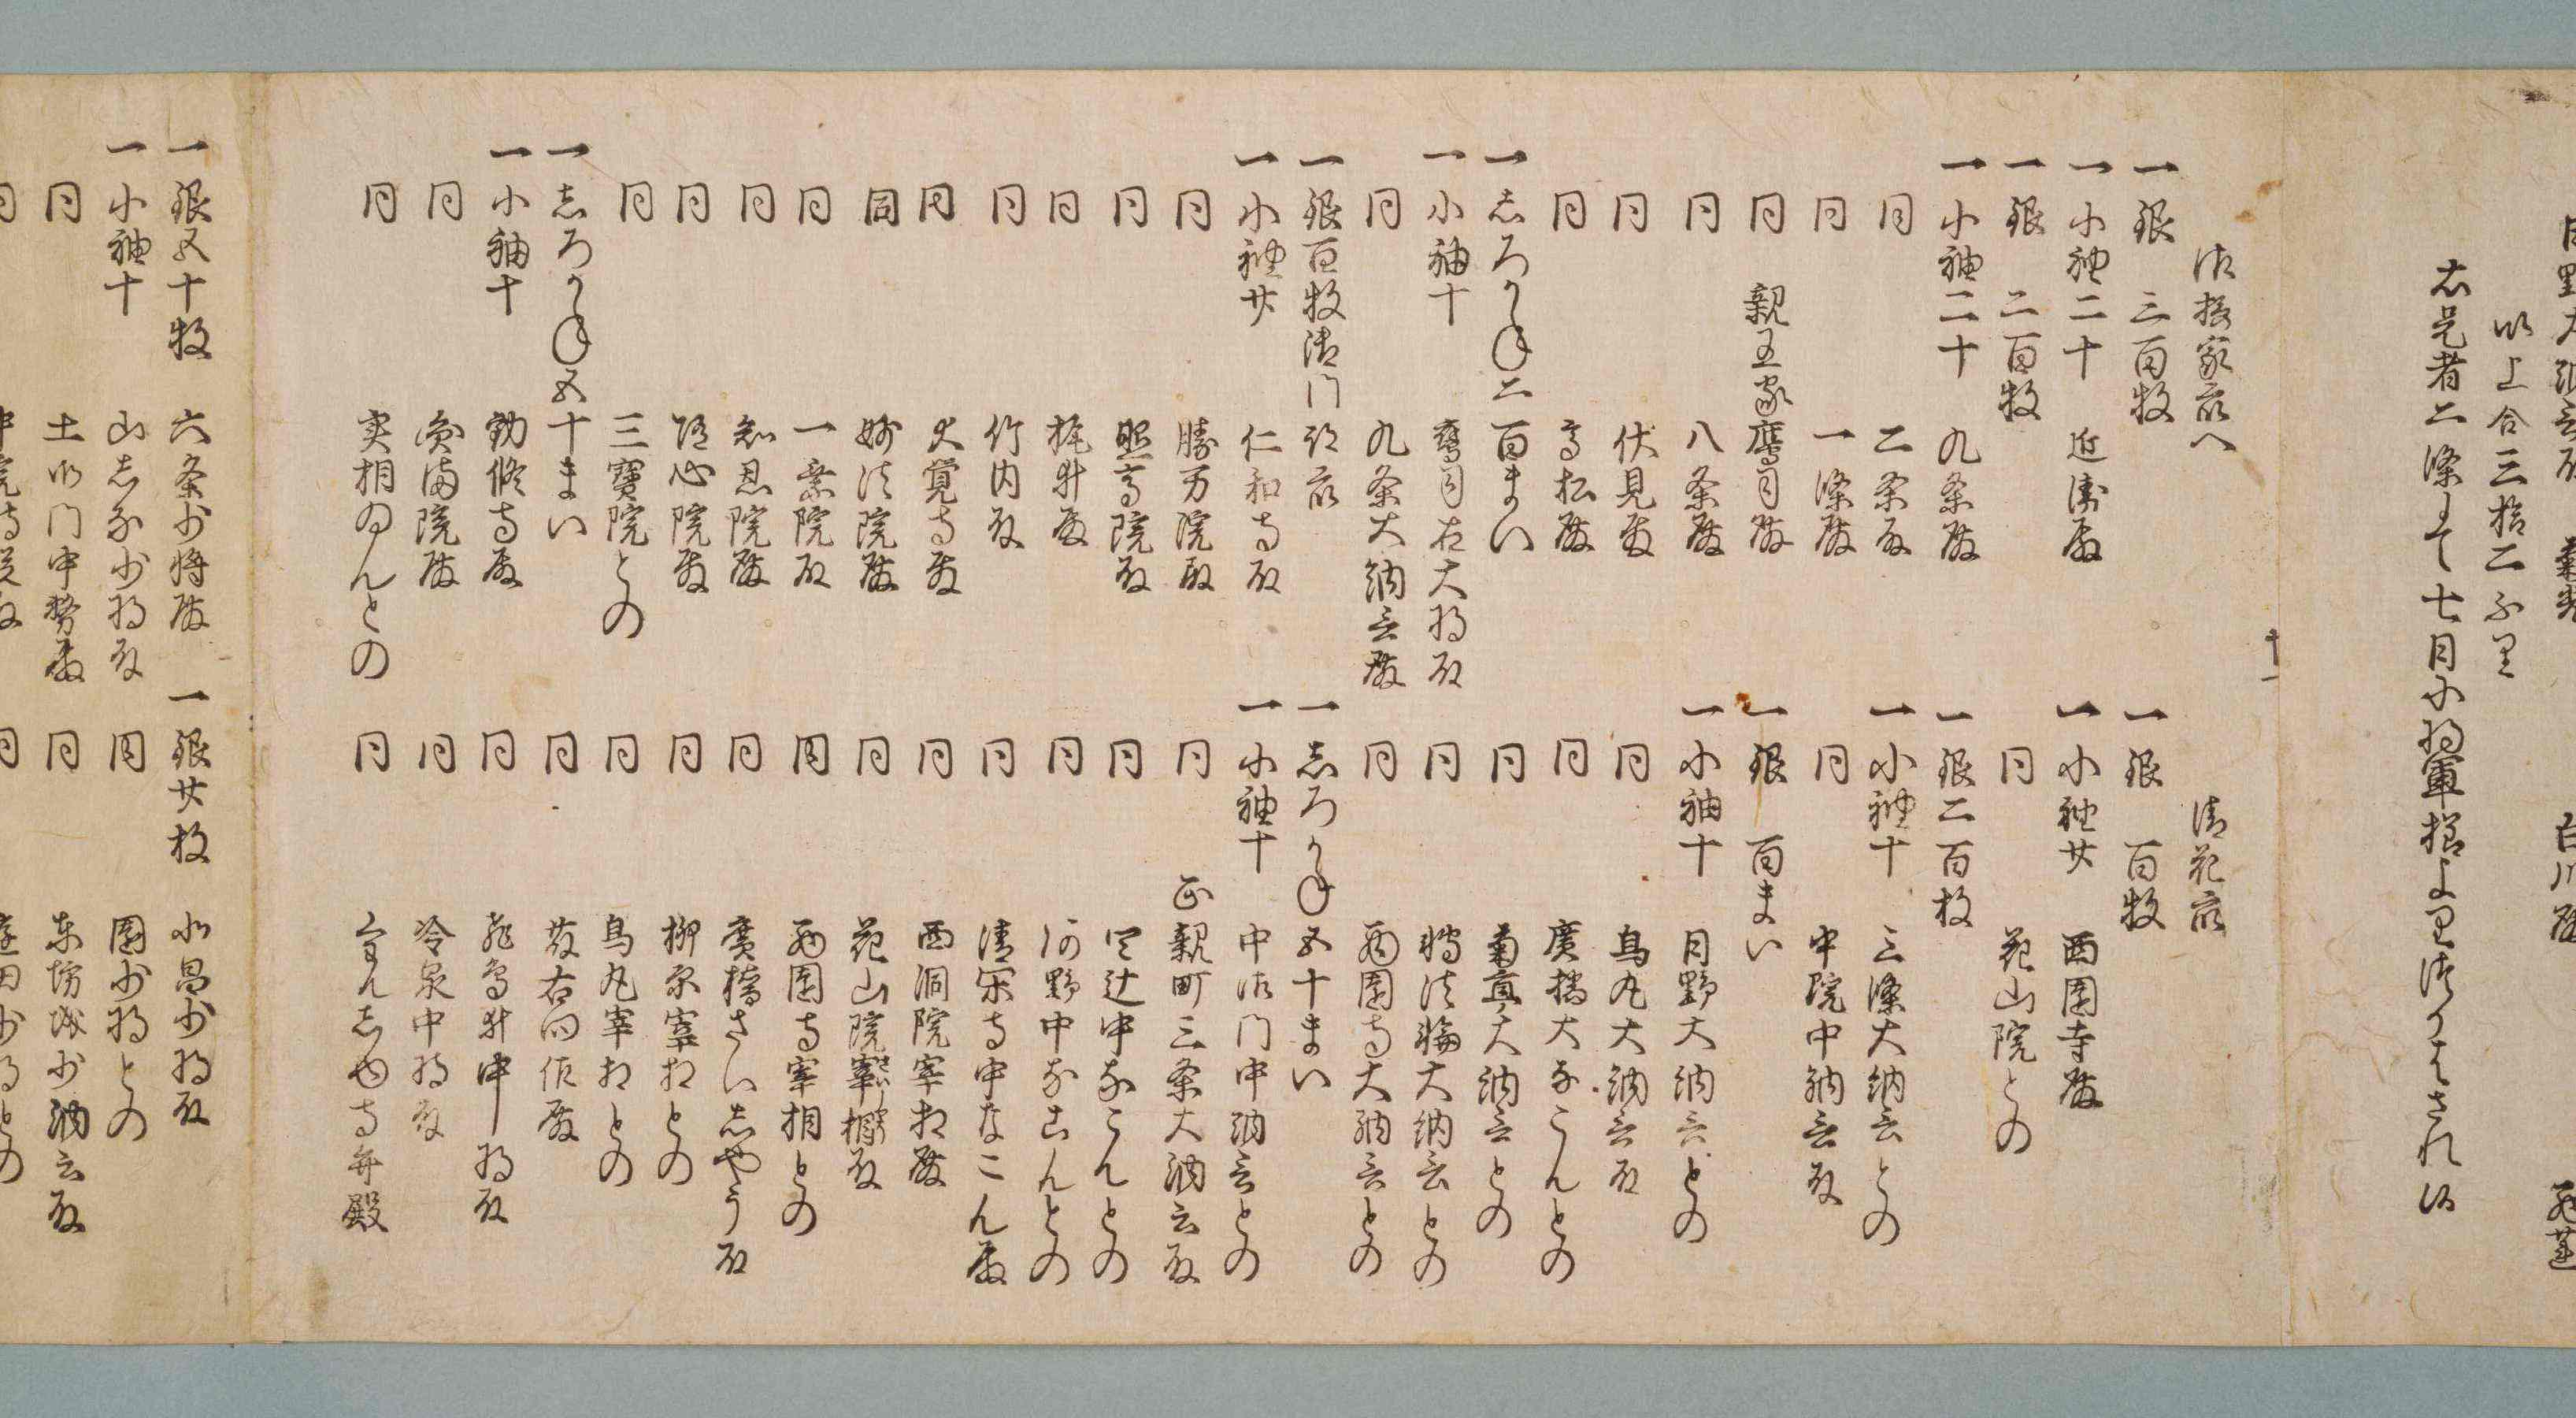 以上合三拾二ふり
右是者二條にて七月小将軍様より御つかはされ候
御摂家衆へ
一銀 三百枚
一小袖二十 近衛殿
一銀 二百枚
一小袖二十 九条殿
同 二条殿
同 一條殿
同 親王家鷹司殿
同 八条殿
同 伏見殿
同 高松殿
一志ろかね二百まい
一小袖十 鷹司右大将殿
同 九条大納言殿
一銀百枚御門跡衆
一小袖廿 仁和寺殿
同 勝万院殿
同 照高院殿
同 梶井殿
同 竹内殿
同 大覚寺殿
同 妙法院殿
同 一乗院殿
同 知恩院殿
同 随心院殿
同 三寶院との
一志ろかね五十まい
一小袖十 勧修寺殿
同 圓満院殿
同 実相ゐんとの
清花衆
一銀 百枚
一小袖廿 西園寺殿
同 花山院との
一銀二百枚
一小袖十 三條大納言との
同 中院中納言殿
一銀 百まい
一小袖十 日野大納言との
同 烏丸大納言殿
同 廣橋大なこんとの
同 菊亭大納言との
同 轉法輪大納言との
同 西園寺大納言との
一志ろかね五十まい
一小袖十 中御門中納言との
同 正親町三条大納言殿
同 四辻中なこんとの
同 河野中なこんとの
同 清閑寺中なこん殿
同 西洞院宰相殿
同 花山院宰相殿
同 西園寺宰相との
同 廣橋さい志やう殿
同 柳原宰相との
同 烏丸宰相との
同 藪右衛門佐殿
同 飛鳥井中将殿
同 冷泉中将殿
同 くわん志ゆ寺弁殿
一銀五十枚 六条少将殿
一小袖十 山志な少将殿
同 土御門中務殿
一銀廿枚 北畠少将殿
同 園少将との
同 東坊城少納言殿